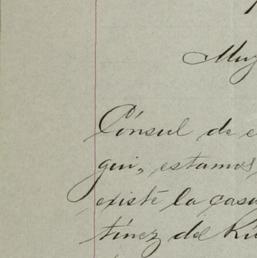 Muy
Cónsul de e
gui, estamos
existe la casa
tínez del Rí